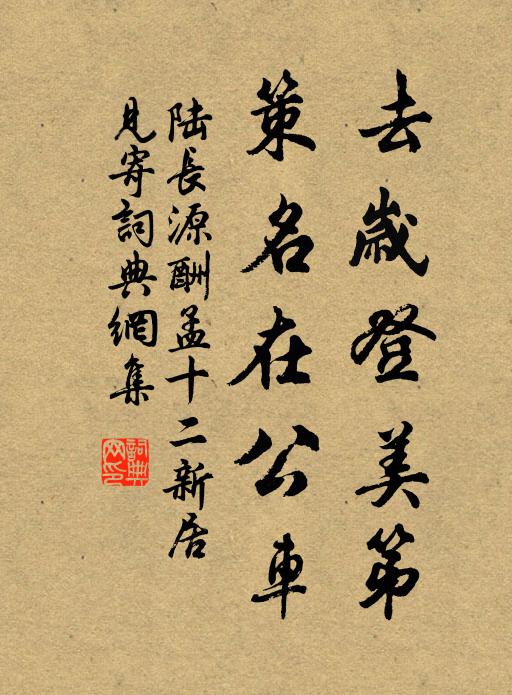 去歲登美第
策名在公車
陸長源酬孟十二新居
見寄詞典網集
詞典網印